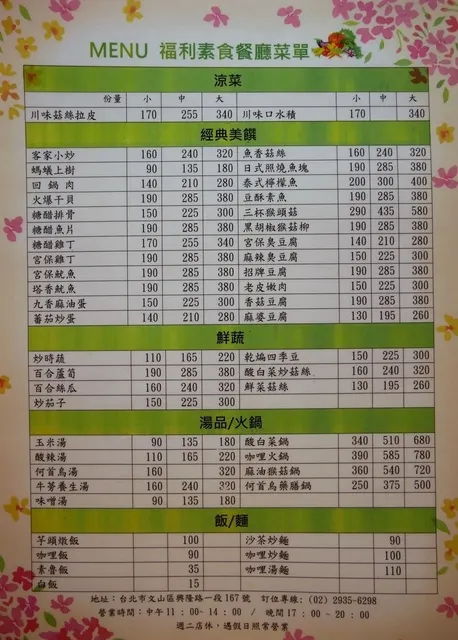 MENU 福利素食餐廳菜單
涼菜
份量 小 中 大 小 中 大
川味菇絲拉皮 170 255 340 川味口水積 170 340
經典美饌
客家小炒 160 240 320 魚香菇絲 160 240 320
螞蟻上樹 90 135 180 日式照燒魚塊 190 285 380
回鍋肉 140 210 280 泰式檸檬魚 200 300 400
火爆干貝 190 285 380 豆酥素魚 190 285 380
糖醋排骨 150 225 300 三杯猴頭菇 290 435 580
糖醋魚片 190 285 380 黑胡椒猴菇柳 190 285 380
糖醋雞丁 170 255 340 宮保臭豆腐 140 210 280
宮保雞丁 190 285 380 麻辣臭豆腐 150 225 300
宮保魷魚 190 285 380 招牌豆腐 190 285 380
塔香魷魚 190 285 380 老皮嫩肉 150 225 300
九香麻油蛋 150 225 300 香菇豆腐 190 285 380
蕃茄炒蛋 140 210 280 麻婆豆腐 130 195 260
鮮蔬
炒時蔬 110 165 220 乾煸四季豆 150 225 300
百合蘆筍 190 285 380 酸白菜炒菇絲 160 240 320
百合絲瓜 160 240 320 鮮菜菇絲 130 195 260
炒茄子 150 225 300
湯品/火鍋
玉米湯 90 135 180 酸白菜鍋 340 510 680
酸辣湯 110 165 220 咖哩火鍋 390 585 780
何首烏湯 160 320 麻油猴菇鍋 360 540 720
牛蒡養生湯 160 240 320 何首烏藥膳鍋 250 375 500
味噌湯 90 135 180
飯/麵
芋頭燉飯 100 沙茶炒麵 90
咖哩飯 90 咖哩炒麵 100
素魯飯 35 咖哩湯麵 110
白飯 15
地址：台北市文山區興隆路一段167號 訂位專線：(02) 2935-6298
營業時間：中午11：00~14：00 / 晚間17：00~20：00
週二店休，遇假日照常營業